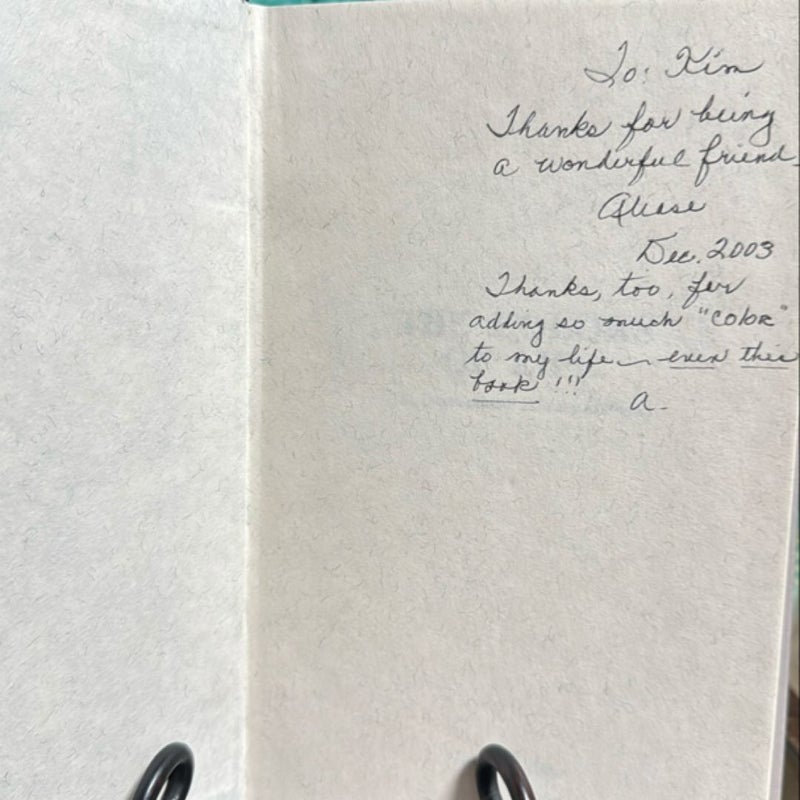 To: Kim
Thanks for being
a wonderful friend.
Alease
Dec. 2003
Thanks, too, for
adding so much "color"
to my life – even this
book !!!
a.